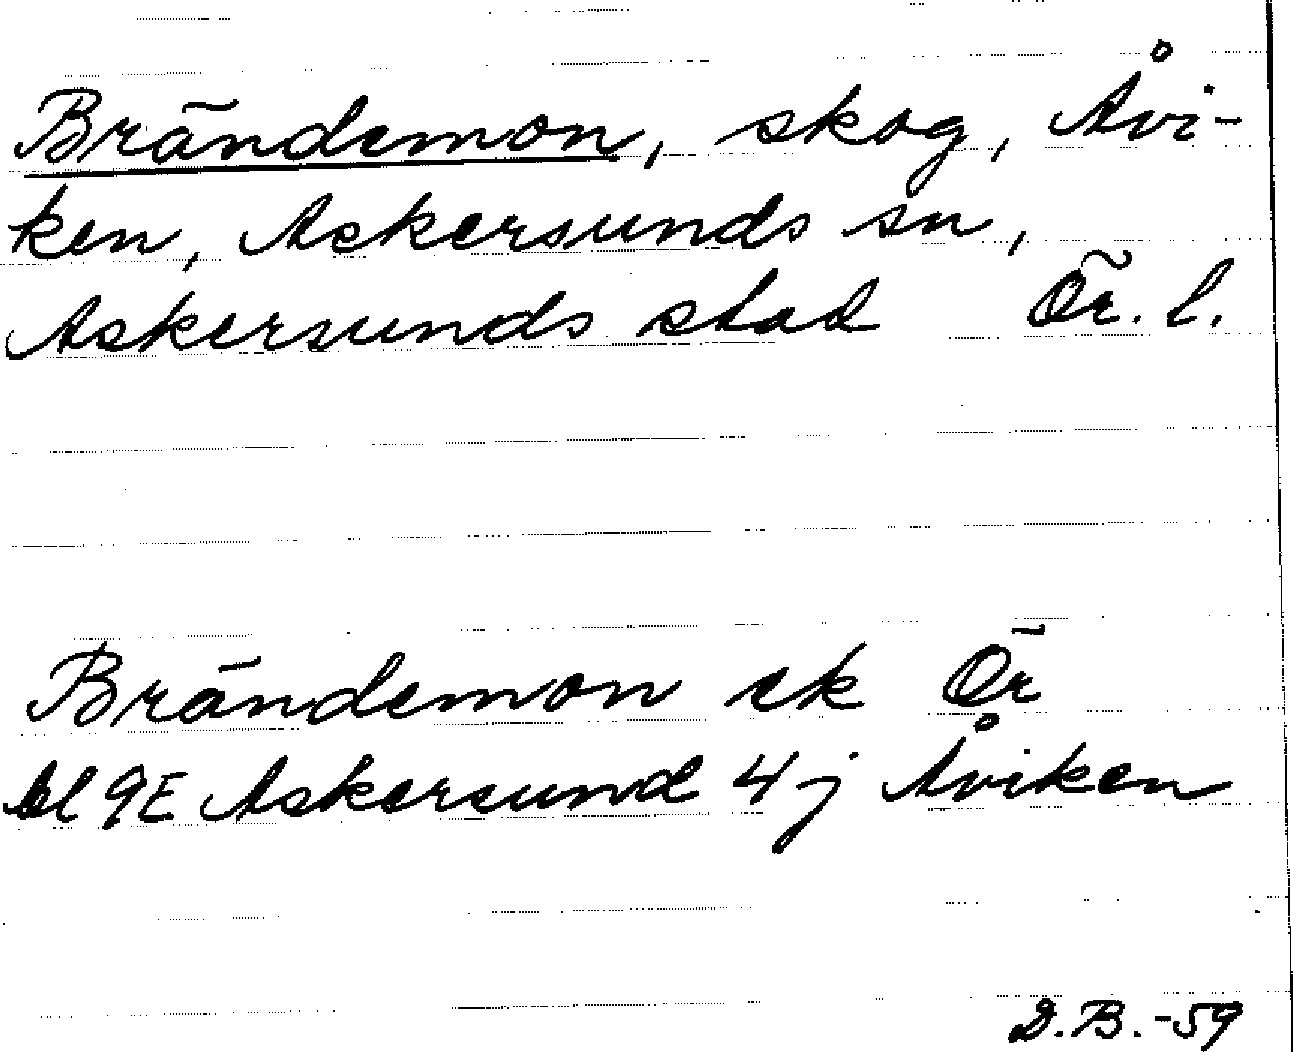 Brändemon, skog, Åvi-
ken, Askersunds sn,
Askersunds stad Ör. l.
Brändemon ek Ör
bl 9E Askersund 4 j Åviken
D.B.-59